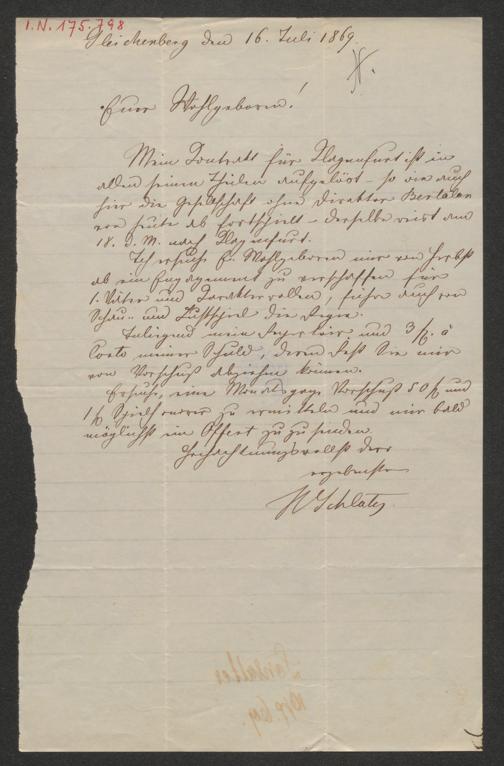 I.N. 175.798
Gleichenberg den 16. Juli 1869.
Euer Wohlgeboren!
Mein Contrakt für Klagenfurt ist in
allen seinen Theilen aufgelöst – so wie auch
hier die Gesellschaft ohne Direktor Bertalan
von heute ab fortspielt – derselbe reist am
18. d. M. nach Klagenfurt.
Ich ersuche E: Wohlgeboren mir von Herbst
ab ein Engagement zu verschaffen für
1. Väter und Charakterrollen, führe auch von
Schau- und Lustspiel die Regie.
Inliegend mein Repertoir und 3 f. à
Conto meiner Schuld, deren Rest Sie mir
von Vorschuß abziehen können.
Ersuche, eine Monatsgage Vorschuß 50 f und
1 f Spielhonorar zu ermitteln und mir bald
möglichst ein Offert zuzusenden.
Hochachtungsvollst der
ergebenste